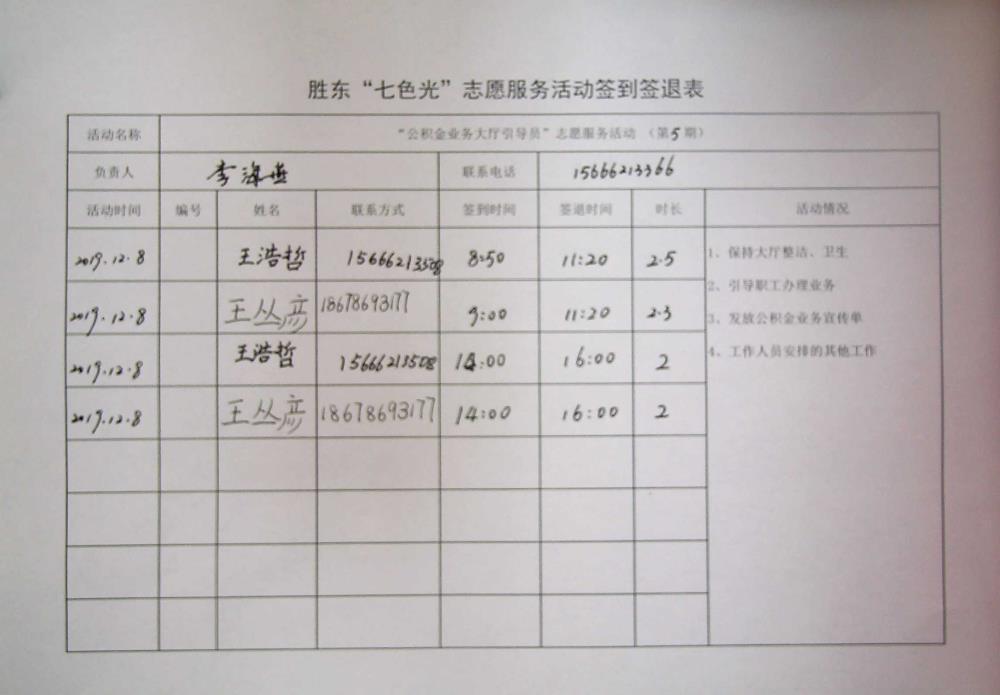 胜东“七色光”志愿服务活动签到签退表
活动名称 “公积金业务大厅引导员”志愿服务活动 （第5期）
负责人 李海燕 联系电话 15666213366
活动时间 编号 姓名 联系方式 签到时间 签退时间 时长 活动情况
2019.12.8 王浩哲 15666213508 8:50 11:20 2.5
2019.12.8 王丛彦 18678693177 9:00 11:20 2.3
2019.12.8 王浩哲 15666213508 14:00 16:00 2
2019.12.8 王丛彦 18678693177 14:00 16:00 2
1、保持大厅整洁、卫生
2、引导职工办理业务
3、发放公积金业务宣传单
4、工作人员安排的其他工作